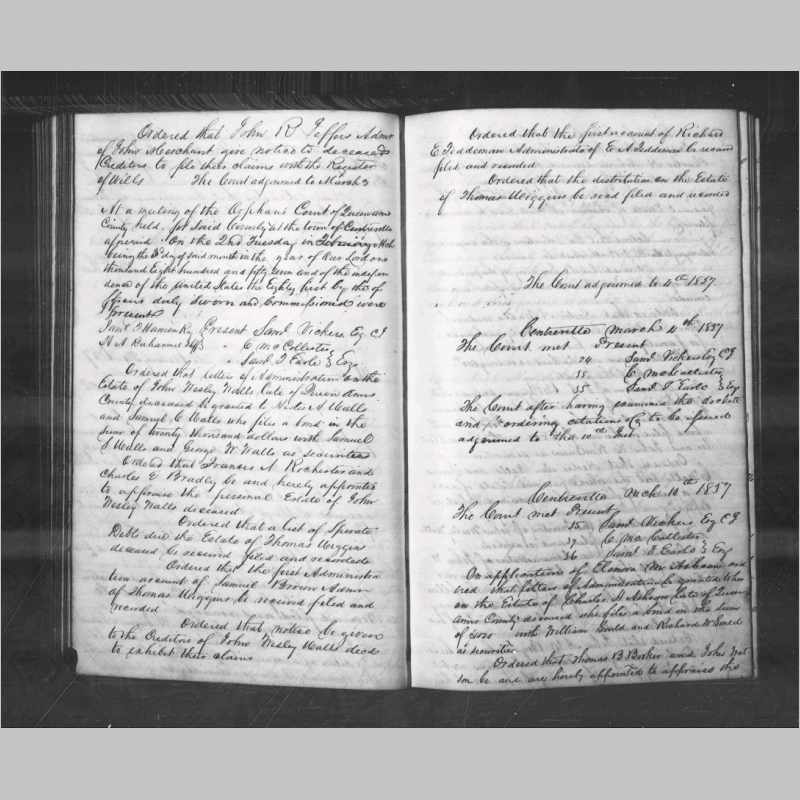 Ordered that John R Jeffers Admr
of John Merchant give notice to deceased
Creditors to file their claims with the Register
of Wills The Court adjourned to March 3
At a meeting of the Orphans Court of Queen Anns
County held for said County at the town of Centreville
on the 2nd Tuesday in February March
being the 3d day of said month in the year of our Lord one
thousand Eight hundred and fifty seven and of the indepen
dence of the United States the Eighty first by the of
ficers duly sworn and Commissioned were
present
Present Saml Vickers Esq CJ
C McCollister
Saml T Earle } Esqs
Ordered that letters of Administration on the
Estate of John Wesley Walls late of Queen Anns
County deceased be granted to A Walls
and Samuel C Walls who file a bond in the
sum of twenty thousand dollars with Samuel
S Walls and George W Walls as securities
Ordered that Francis A Rochester and
Charles E Bradley be and hereby appointed
to appraise the personal Estate of John
Wesley Walls deceased
Ordered that a list of Sperate
Debts due the Estate of Thomas Wiggins
deceased be received filed and recorded
Ordered that the first Administra
tion account of Samuel Brown Admr
of Thomas Wiggins be received filed and
recorded
Ordered that notice be given
to the Creditors of John Wesley Walls decd
to exhibit their claims
Ordered that the first account of Richard
E Feddeman Administrator of E A Feddeman be received
filed and recorded
Ordered that the distribution on the Estate
of Thomas Wiggins be read filed and recorded
The Court adjourned to 4th 1857
Centreville March 4th 1857
The Court met Present
24 Saml Vickers Esq CJ
55 C McCollister
55 Saml T Earle } Esqs
The Court after having examined the docket
and ordering citations &c to be issued
adjourned to the 10th Inst
Centreville Mch 10th 1857
The Court met Present
15 Saml Vickers Esq CJ
17 C McCollister
36 Saml T Earle } Esqs
On application of Elenora
ered that letters of Administration be granted to her
on the Estate of Charles H late of Queen
Anns County deceased she files a bond in the sum
of with William Gould and Richard W
as securities
Ordered that Thomas B Booker and John Wat
son be and are hereby appointed to appraise the